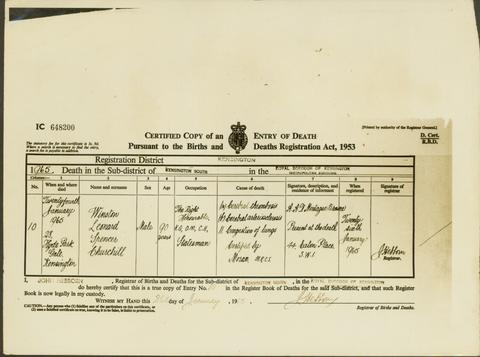 IC 648200
CERTIFIED COPY of an ENTRY OF DEATH
Pursuant to the Births and Deaths Registration Act, 1953
[Printed by authority of the Registrar General.]
D. Cert.
R.B.D.
The statutory fee for this certificate is 3s. 9d.
Where a search is necessary to find the entry,
a search fee is payable in addition.
Registration District KENSINGTON
1965. Death in the Sub-district of KENSINGTON SOUTH in the ROYAL BOROUGH OF KENSINGTON
Columns:— 1 2 3 4 5 6 7 8 9
No. When and where died Name and surname Sex Age Occupation Cause of death Signature, description, and residence of informant When registered Signature of registrar
10
Twentyfourth
January
1965
28
Hyde Park
Gate,
Kensington
Winston
Leonard
Spencer
Churchill
Male
90
years
The Right
Honourable,
K.G., O.M., C.H.,
Statesman
I(a) Cerebral thrombosis
(b) Cerebral arteriosclerosis
II Congestion of lungs
Certified by
Moran, M.R.C.S.
Present at the death
Eaton Place,
S.W.1
Twenty
sixth
January
1965
Registrar.
I, , Registrar of Births and Deaths for the Sub-district of KENSINGTON SOUTH, in the ROYAL BOROUGH OF KENSINGTON
do hereby certify that this is a true copy of Entry No. 10 in the Register Book of Deaths for the said Sub-district, and that such Register
Book is now legally in my custody.
WITNESS MY HAND this day of January, 1965.
CAUTION.—Any person who (1) falsifies any of the particulars on this certificate, or
(2) uses a falsified certificate as true, knowing it to be false, is liable to prosecution.
Registrar of Births and Deaths.